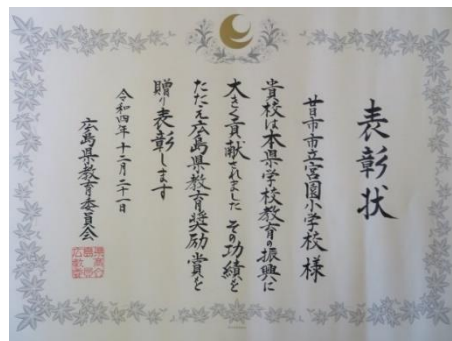 表彰状
廿日市市立宮園小学校 様
貴校は本県学校教育の振興に
大きく貢献されました その功績を
たたえ広島県教育奨励賞を
贈り表彰します
令和四年十二月二十一日
広島県教育委員会